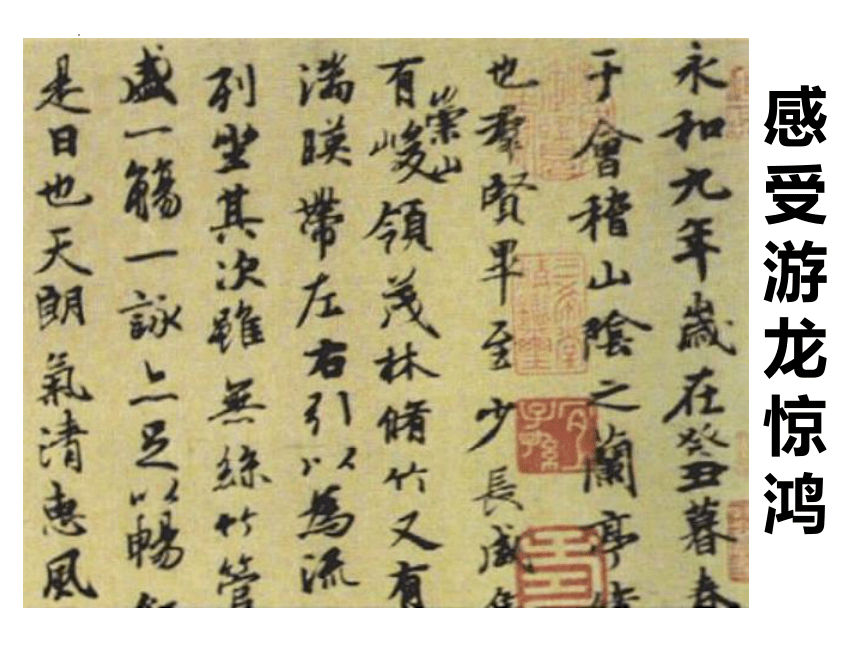 感受游龙惊鸿
永和九年歲在癸丑暮春
于會稽山陰之蘭亭
也羣賢畢至少長咸
有崇山峻領茂林脩竹又有
湍暎帶左右引以為流
列坐其次雖無絲竹管
盛一觴一詠亦足以暢
是日也天朗氣清惠風